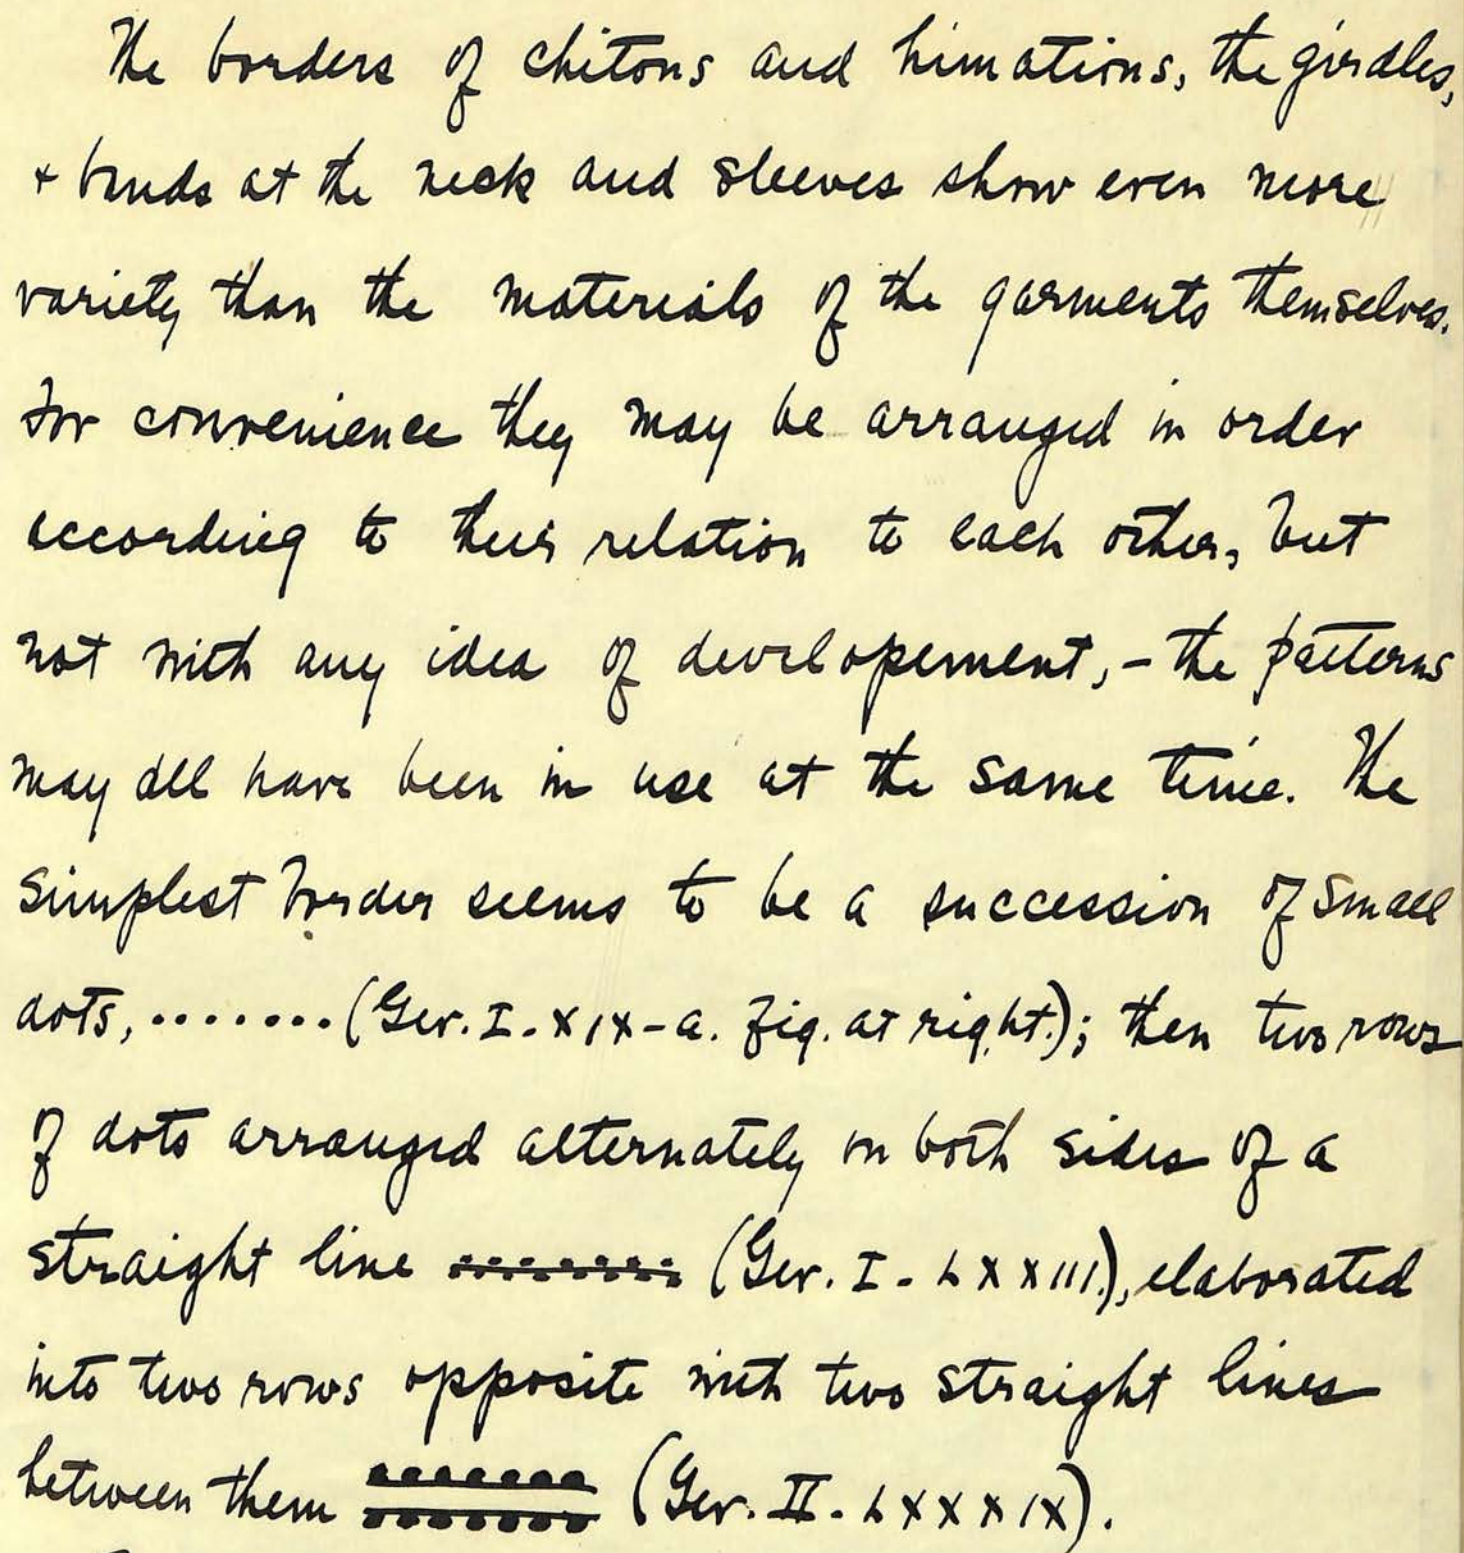 The borders of chitons and himations, the girdles,
+ bands at the neck and sleeves show even more
variety than the materials of the garments themselves.
For convenience they may be arranged in order
according to their relation to each other, but
not with any idea of developement, - the patterns
may all have been in use at the same time. The
simplest border seems to be a succession of small
dots, ....... (Ger. I - XIX - a. Fig. at right.); then two rows
of dots arranged alternately on both sides of a
straight line (Ger. I - LXXIII.), elaborated
into two rows opposite with two straight lines
between them (Ger. II - LXXXIX).